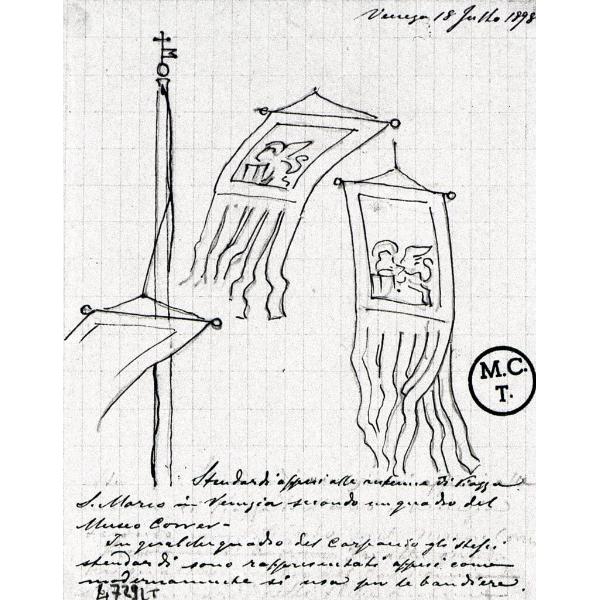 Venezia 18 Julho 1898
M.C.
T.
Stendardi appesi alle antenne di Piazza
S. Marco in Venezia secondo un quadro del
Museo Correr -
In qualche quadro del Carpaccio gli stessi
stendardi sono rappresentati appesi come
modernamente si usa per le bandiere.
4729LT